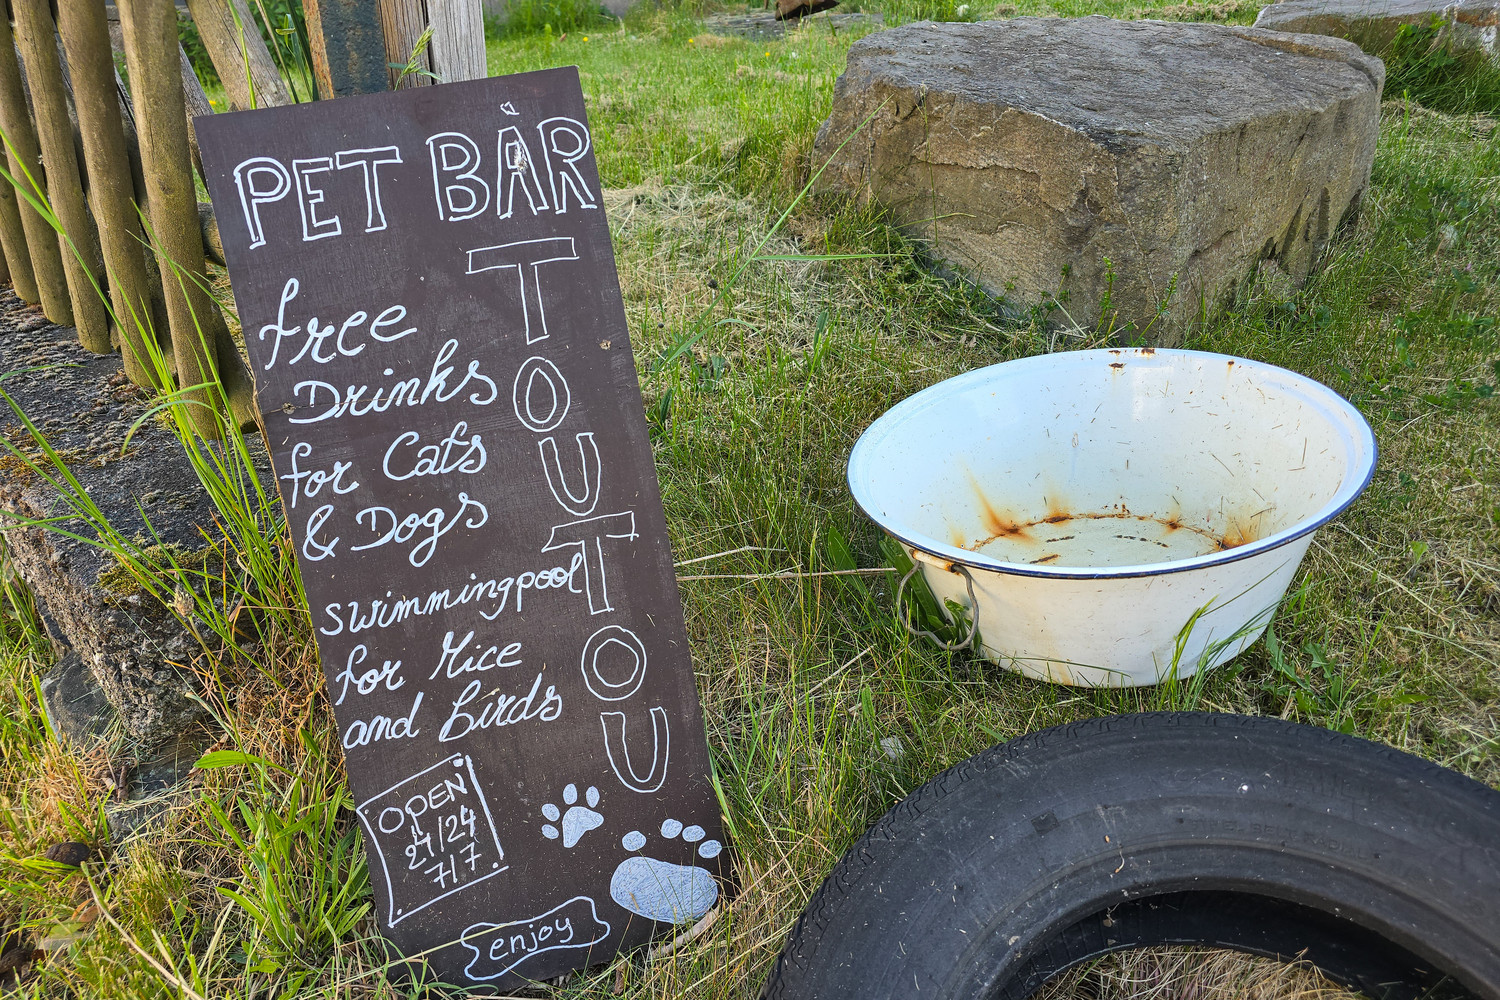 PET BÀR
TOUTOU
free
Drinks
for Cats
& Dogs
swimmingpool
for Mice
and birds
OPEN
24/24
7/7
enjoy